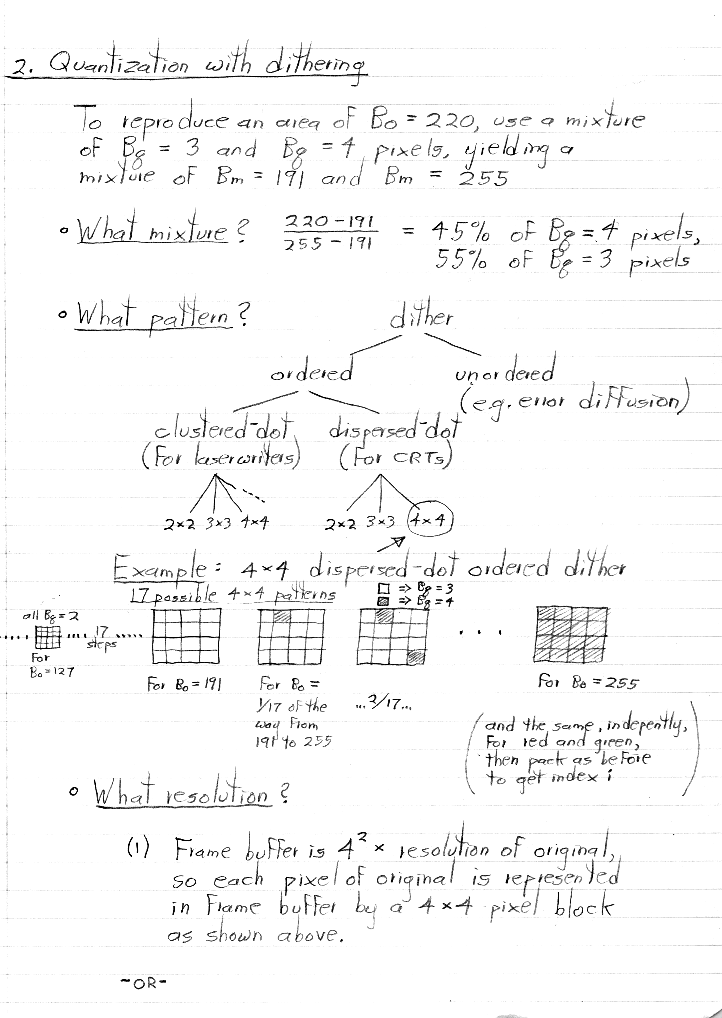 2. Quantization with dithering
To reproduce an area of Bo = 220, use a mixture
of Bq = 3 and Bq = 4 pixels, yielding a
mixture of Bm = 191 and Bm = 255
• What mixture? 220-191 / 255-191 = 45% of Bq = 4 pixels,
55% of Bq = 3 pixels
• What pattern? dither
ordered unordered
(e.g. error diffusion)
clustered-dot dispersed-dot
(for laserwriters) (for CRTs)
2×2 3×3 4×4 2×2 3×3 4×4
Example: 4×4 dispersed-dot ordered dither
17 possible 4×4 patterns
□ => Bq = 3
■ => Bq = 4
all Bq = 2
..... .... 17 steps ..... . . .
For Bo = 127
For Bo = 191
For Bo =
1/17 of the
way from
191 to 255
...2/17...
For Bo = 255
(and the same, indepently,
for red and green,
then pack as before
to get index i)
• What resolution?
(1) Frame buffer is 4² × resolution of original,
so each pixel of original is represented
in frame buffer by a 4×4 pixel block
as shown above.
-OR-